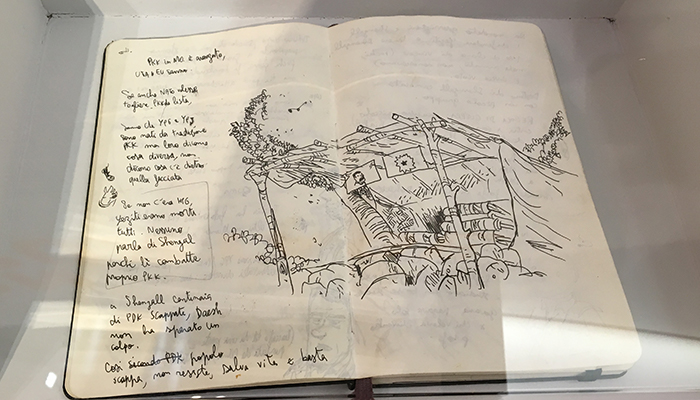 PKK in MO è avanzato,
USA e EU sanno.
Se anche NATO volesse
togliere PKK da lista,
sanno che YPG e YPJ
sono nate da tradizione
PKK ma loro dicono
cosa diversa, non
dicono cosa c'è dietro
quella facciata
Se non c'era HPG,
yeziti erano morti
tutti. Nessuno
parla di Shengal
perché lì combatte
proprio PKK.
a Shengall centinaia
di PDK scappati, Daesh
non ha sparato un
colpo.
Così secondo PDK popolo
scappa, non resiste, salva vita e basta